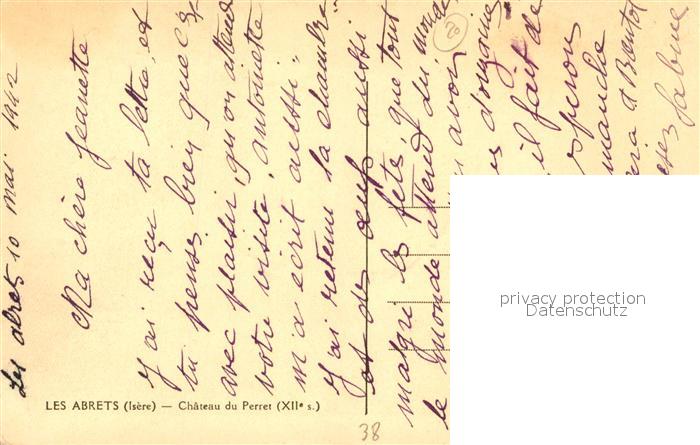 Les abrets 10 mai 1942
Ma chère Jeanette
J'ai reçu ta lettre et
tu penses bien que c'est
avec plaisir qu'on attend
votre visite, antoinette
m'a écrit aussi.
J'ai retenu la chambre
et des oeufs aussi
malgré les fêtes, que tout
le monde attend du monde
avoir
douzaine
il fait de
esperons
manche
à Bientôt
20
LES ABRETS (Isère) — Château du Perret (XIIe s.)
38
privacy protection
Datenschutz